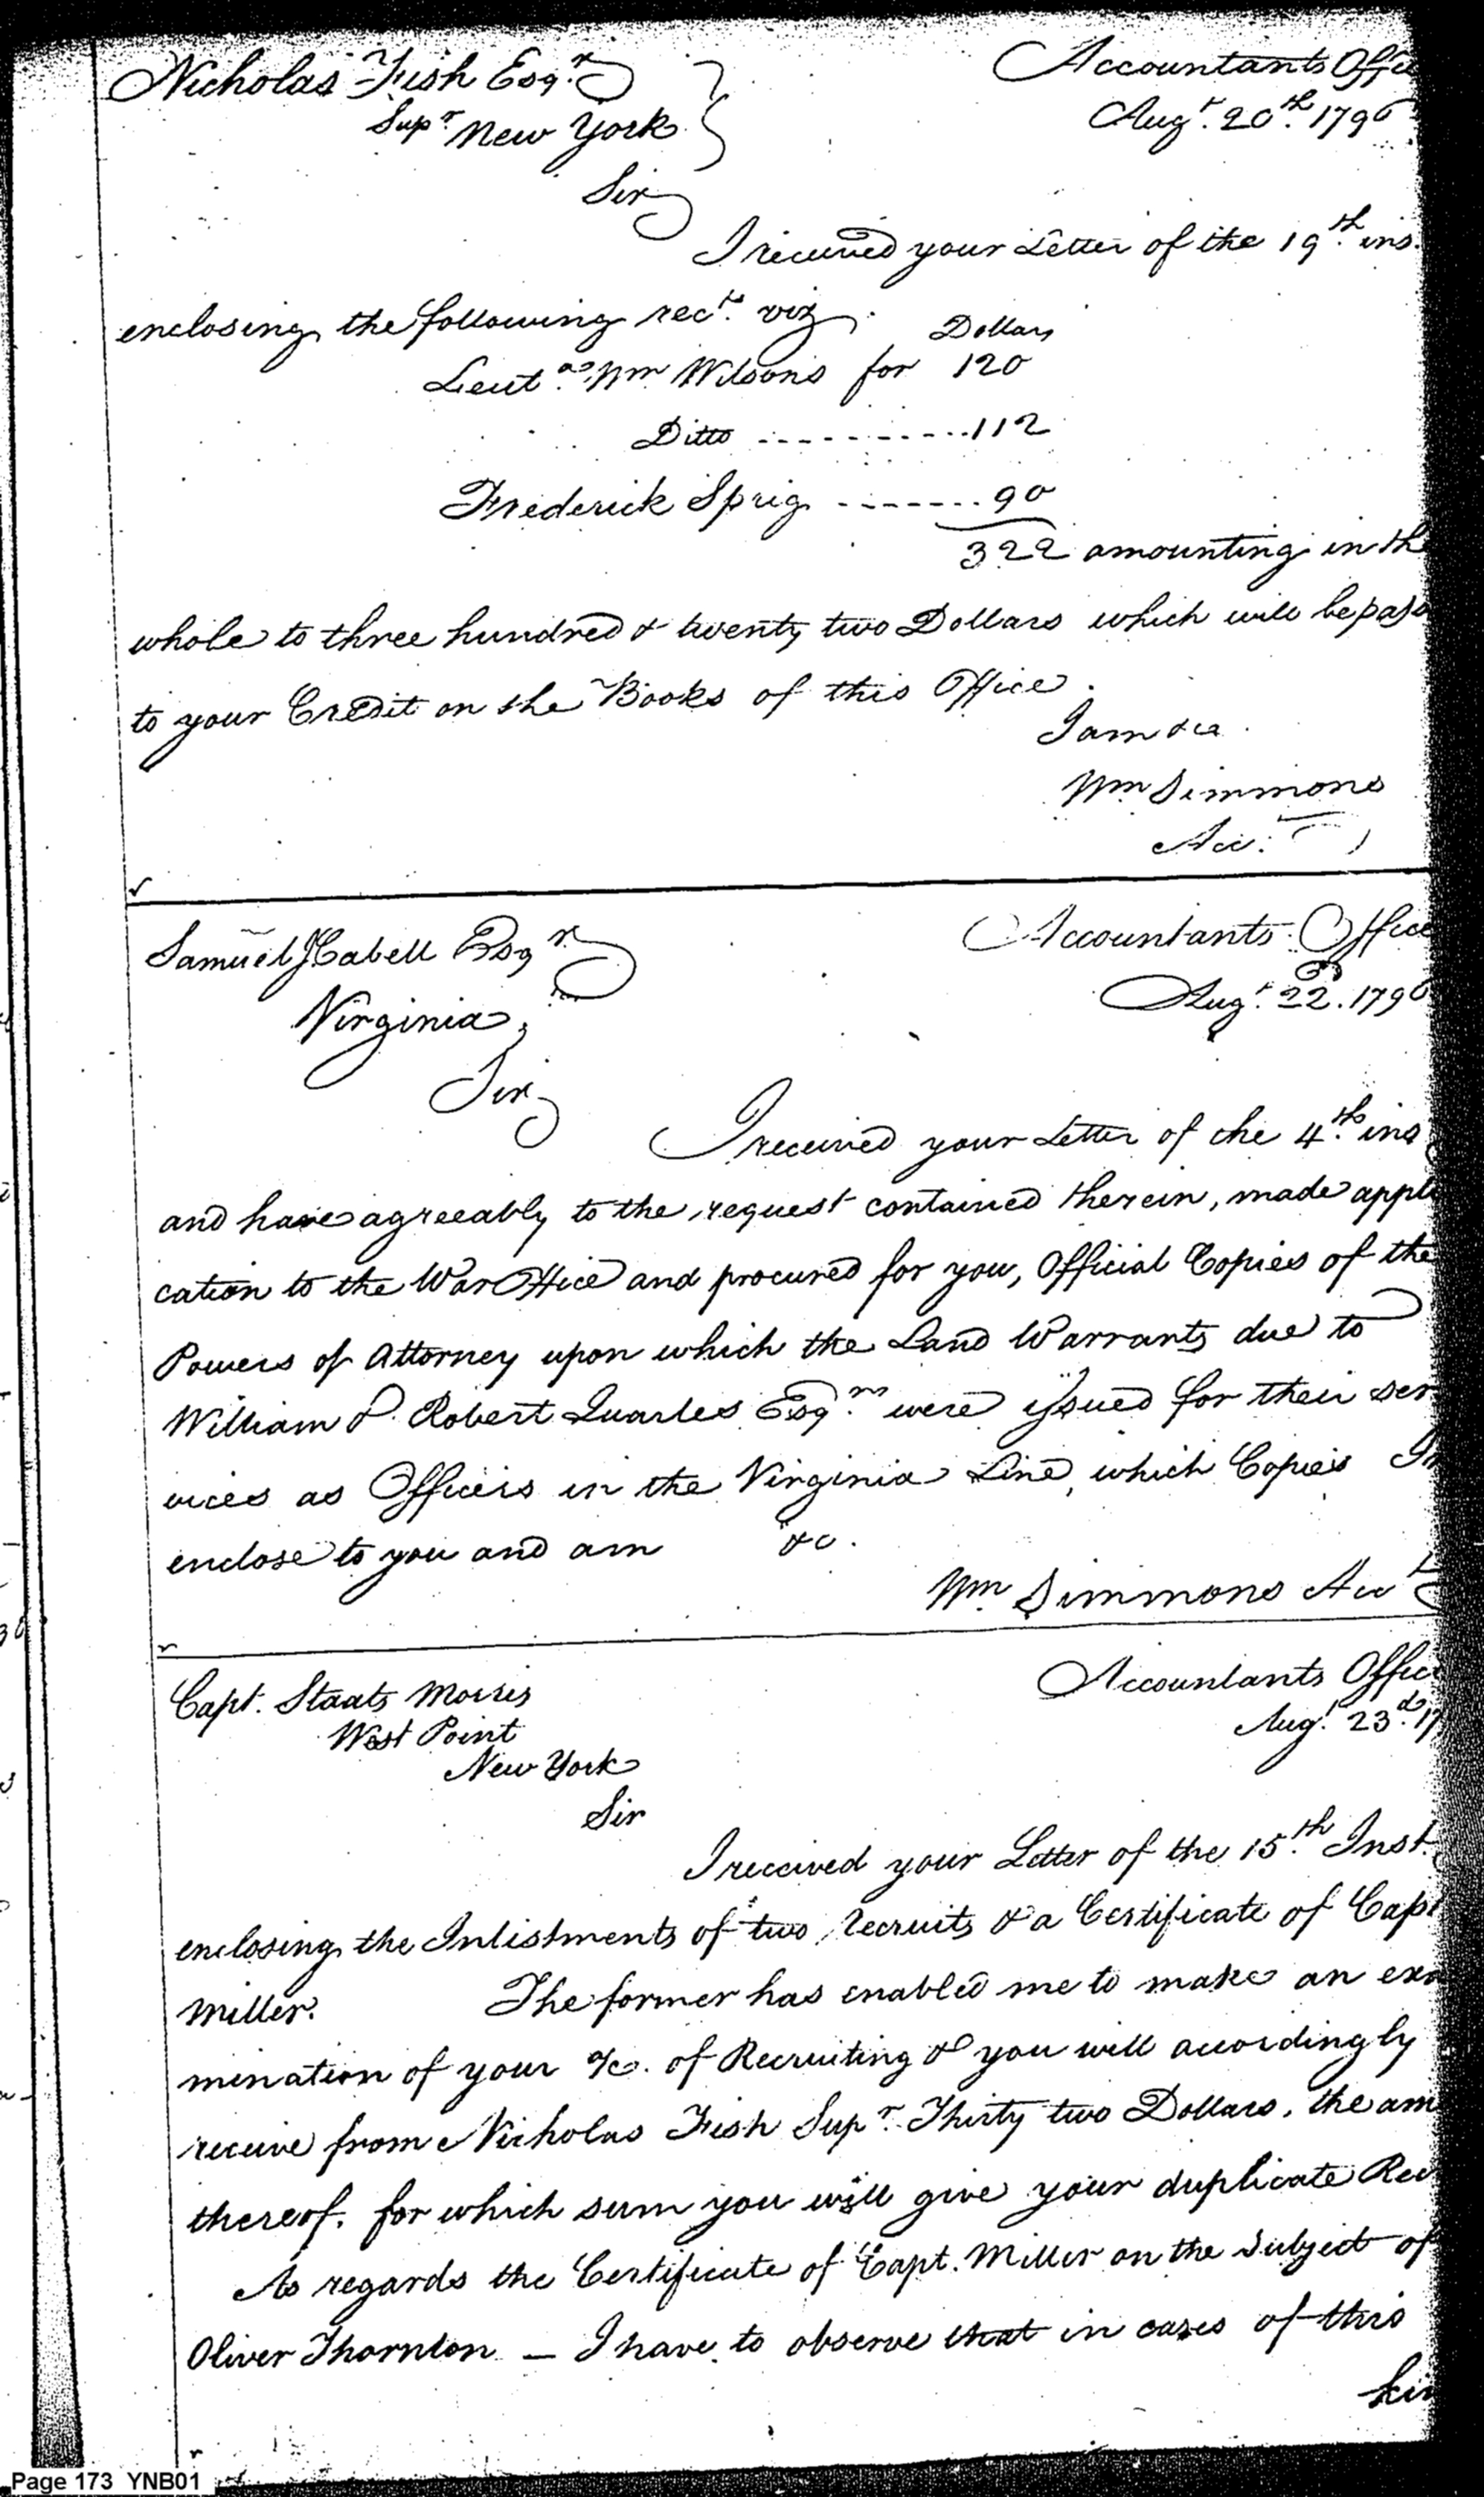 Nicholas Fish Esqr.
Accountants Offic
Supr. New York
Augt. 20th. 1796
Sir
I received your Letter of the 19th. ins.
enclosing the following rect. viz
Dollars
Leiut. Wm Wilsons for 120
Ditto ............ 112
Frederick Sprig ....... 90
322 amounting in th
whole to three hundred & twenty two Dollars which will be pass
to your Credit on the Books of this Office.
I am &ca.
Wm Simmons
Acc.
Samuel J Cabell Esqr.
Accountants Office
Virginia
Augt. 22d. 1796
Sir
I received your Letter of the 4th. ins
and have agreeably to the request contained therein, made appli
cation to the War Office and procured for you, Official Copies of the
Powers of Attorney upon which the Land Warrants due to
William & Robert Quarles Esqrs. were issued for their ser
vices as Officers in the Virginia Line, which Copies I
enclose to you and am &c.
Wm Simmons Acct
Capt. Staats Morris
Accountants Offic
West Point
Augt. 23d. 17
New York
Sir
I received your Letter of the 15th. Inst.
enclosing the Inlistments of two Recruits & a Certificate of Capt
Miller. The former has enabled me to make an exa
mination of your a/c. of Recruiting & you will accordingly
receive from Nicholas Fish Supr. Thirty two Dollars, the am
thereof. for which sum you will give your duplicate Rec
As regards the Certificate of Capt. Miller on the Subject of
Oliver Thornton — I have to observe that in cases of this
kin
Page 173 YNB01